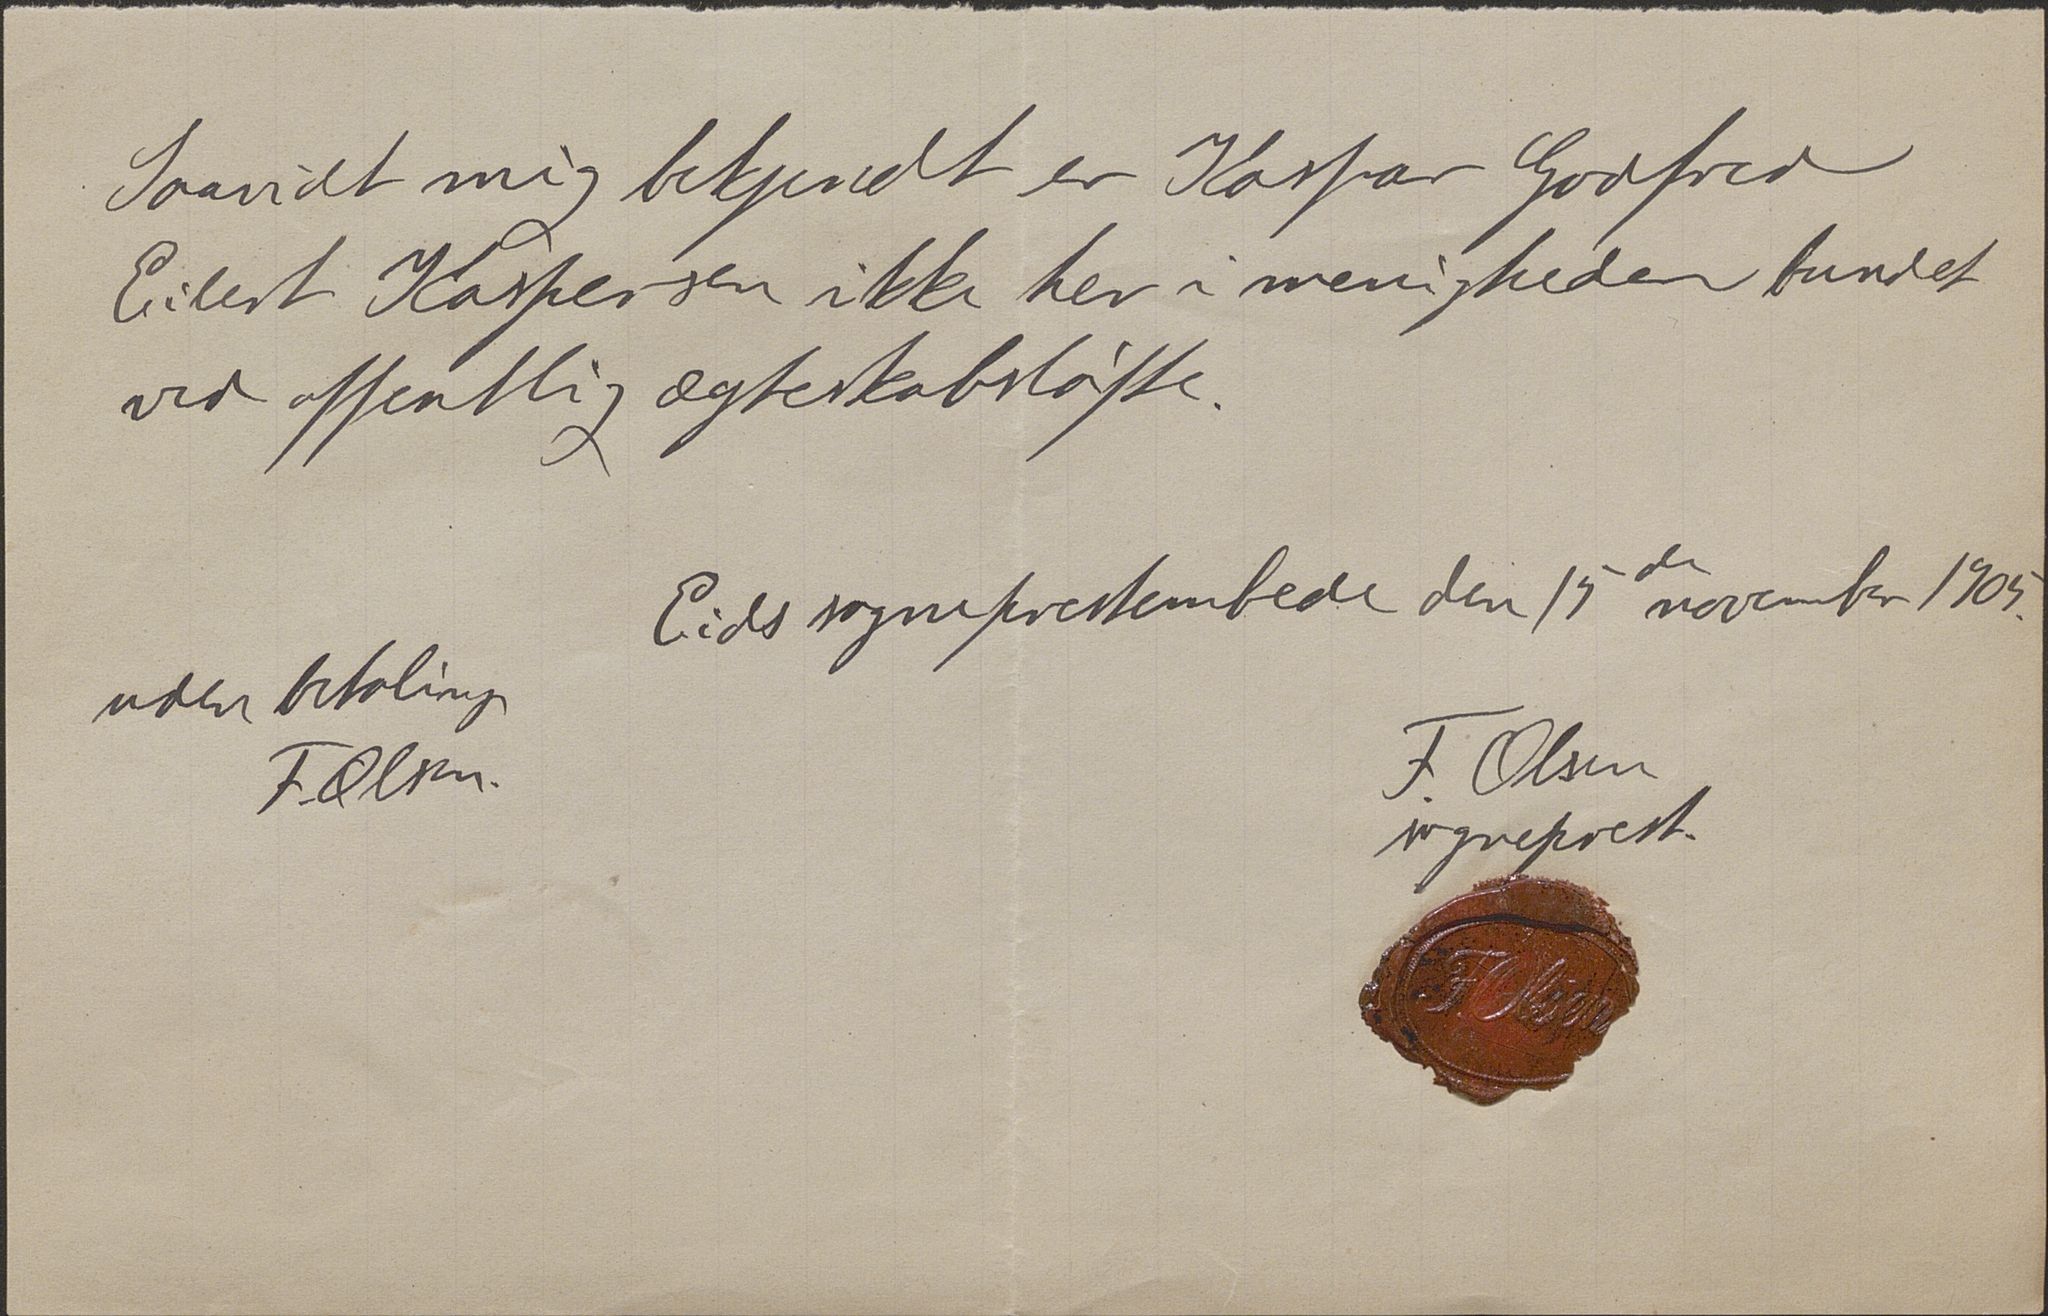 Saavidt mig bekjendt er Kaspar Godfred
Eilert Kaspersen ikke her i menigheden bundet
ved offentlig ægteskabsløfte.
Eids sogneprestembede den 15de november 1905.
uden betaling
F. Olsen.
F. Olsen
sogneprest.
F. Olsen